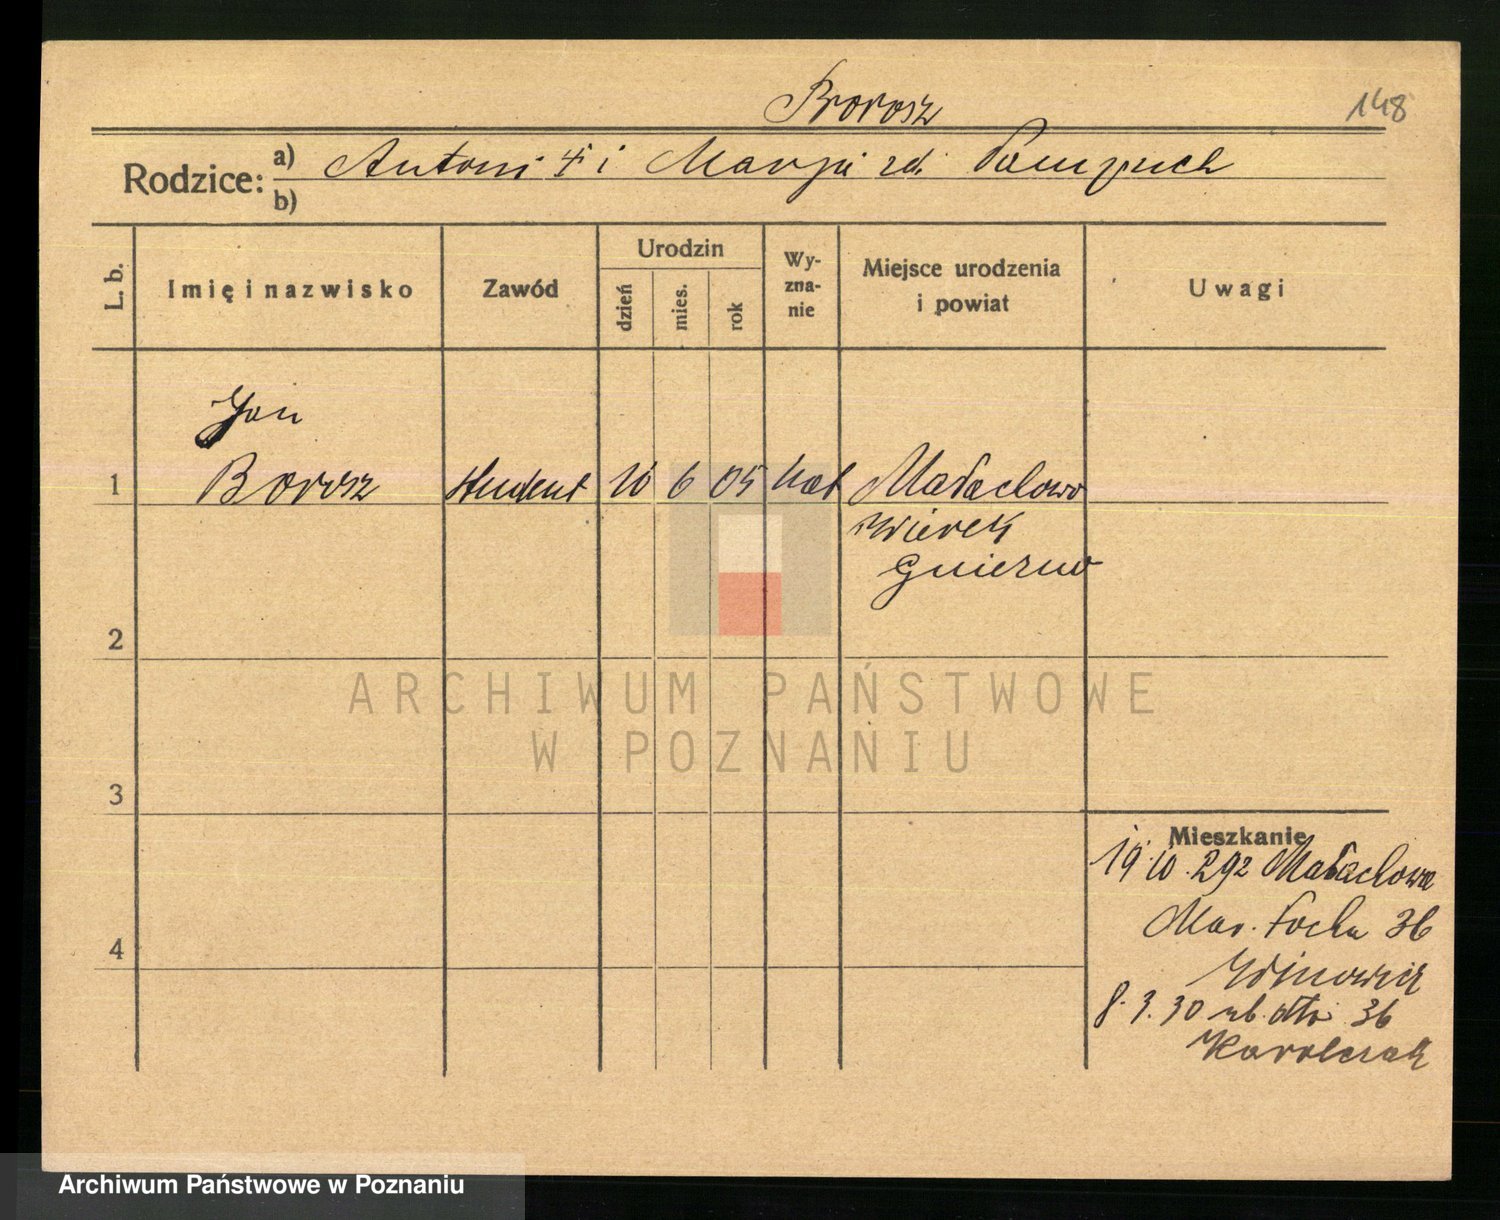 Borosz
148
Rodzice: a) Antoni † i Marja zd. Pampuch
b)
L. b.
Imię i nazwisko
Zawód
Urodzin
dzień
mies.
rok
Wy-
zna-
nie
Miejsce urodzenia
i powiat
Uwagi
Jan
1 Borosz student 10 6 05 kat Małachowo
Gniezno
2
ARCHIWUM PAŃSTWOWE
W POZNANIU
3
Mieszkanie
19.10.29 z Małachowa
4
Mar. Focha 36
8.3.30 dto 36
Karolczak
Archiwum Państwowe w Poznaniu